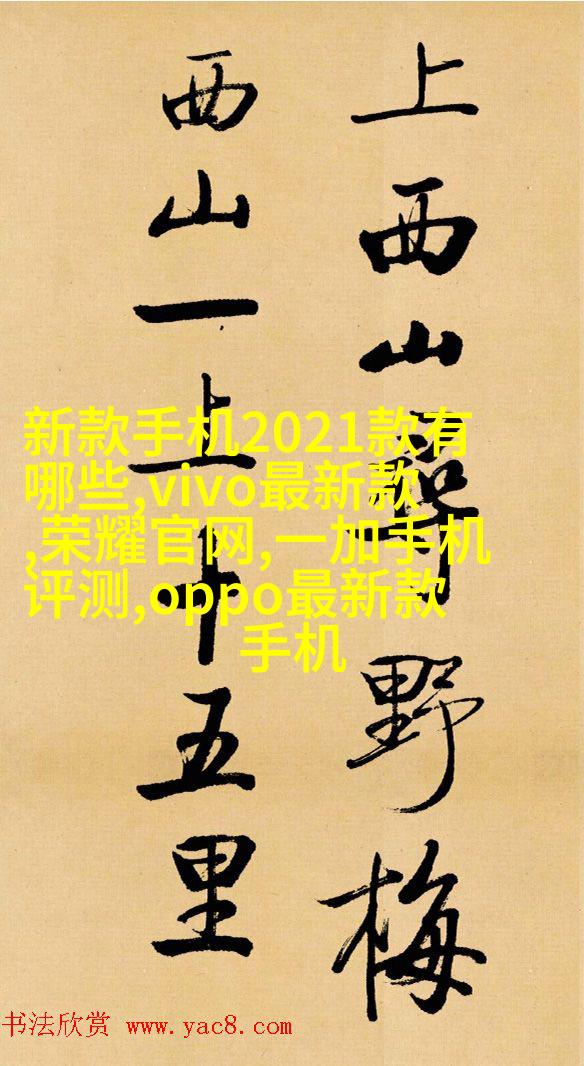 上西山尋野梅
西山一上十五里
新款手机2021款有
哪些,vivo最新款
,荣耀官网,一加手机
评测,oppo最新款
手机
书法欣赏 www.yac8.com